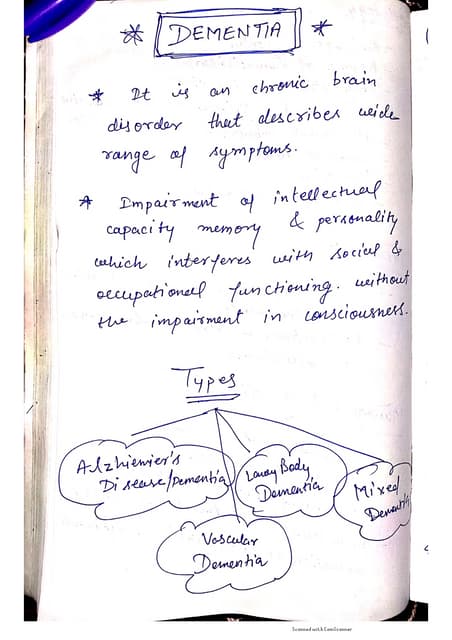 * DEMENTIA *
* It is an chronic brain
disorder that describes wide
range of symptoms.
* Impairment of intellectual
capacity memory & personality
which interferes with social &
occupational functioning. without
the impairment in consciousness.
Types
Alzhiemer's
Disease/Dementia
Lewey Body
Dementia
Mixed
Dementia
Vascular
Dementia
Scanned with CamScanner